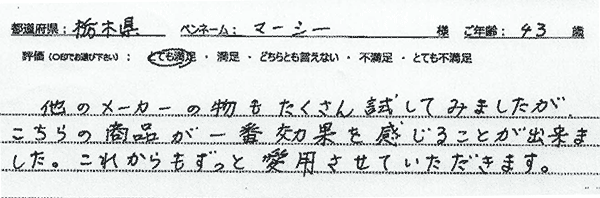 都道府県：栃木県 ペンネーム：マーシー 様 ご年齢：43 歳
評価（○印でお選び下さい） とても満足 ・ 満足 ・ どちらとも言えない ・ 不満足 ・ とても不満足
他のメーカーの物もたくさん試してみましたが、
こちらの商品が一番効果を感じることが出来ま
した。これからもずっと愛用させていただきます。